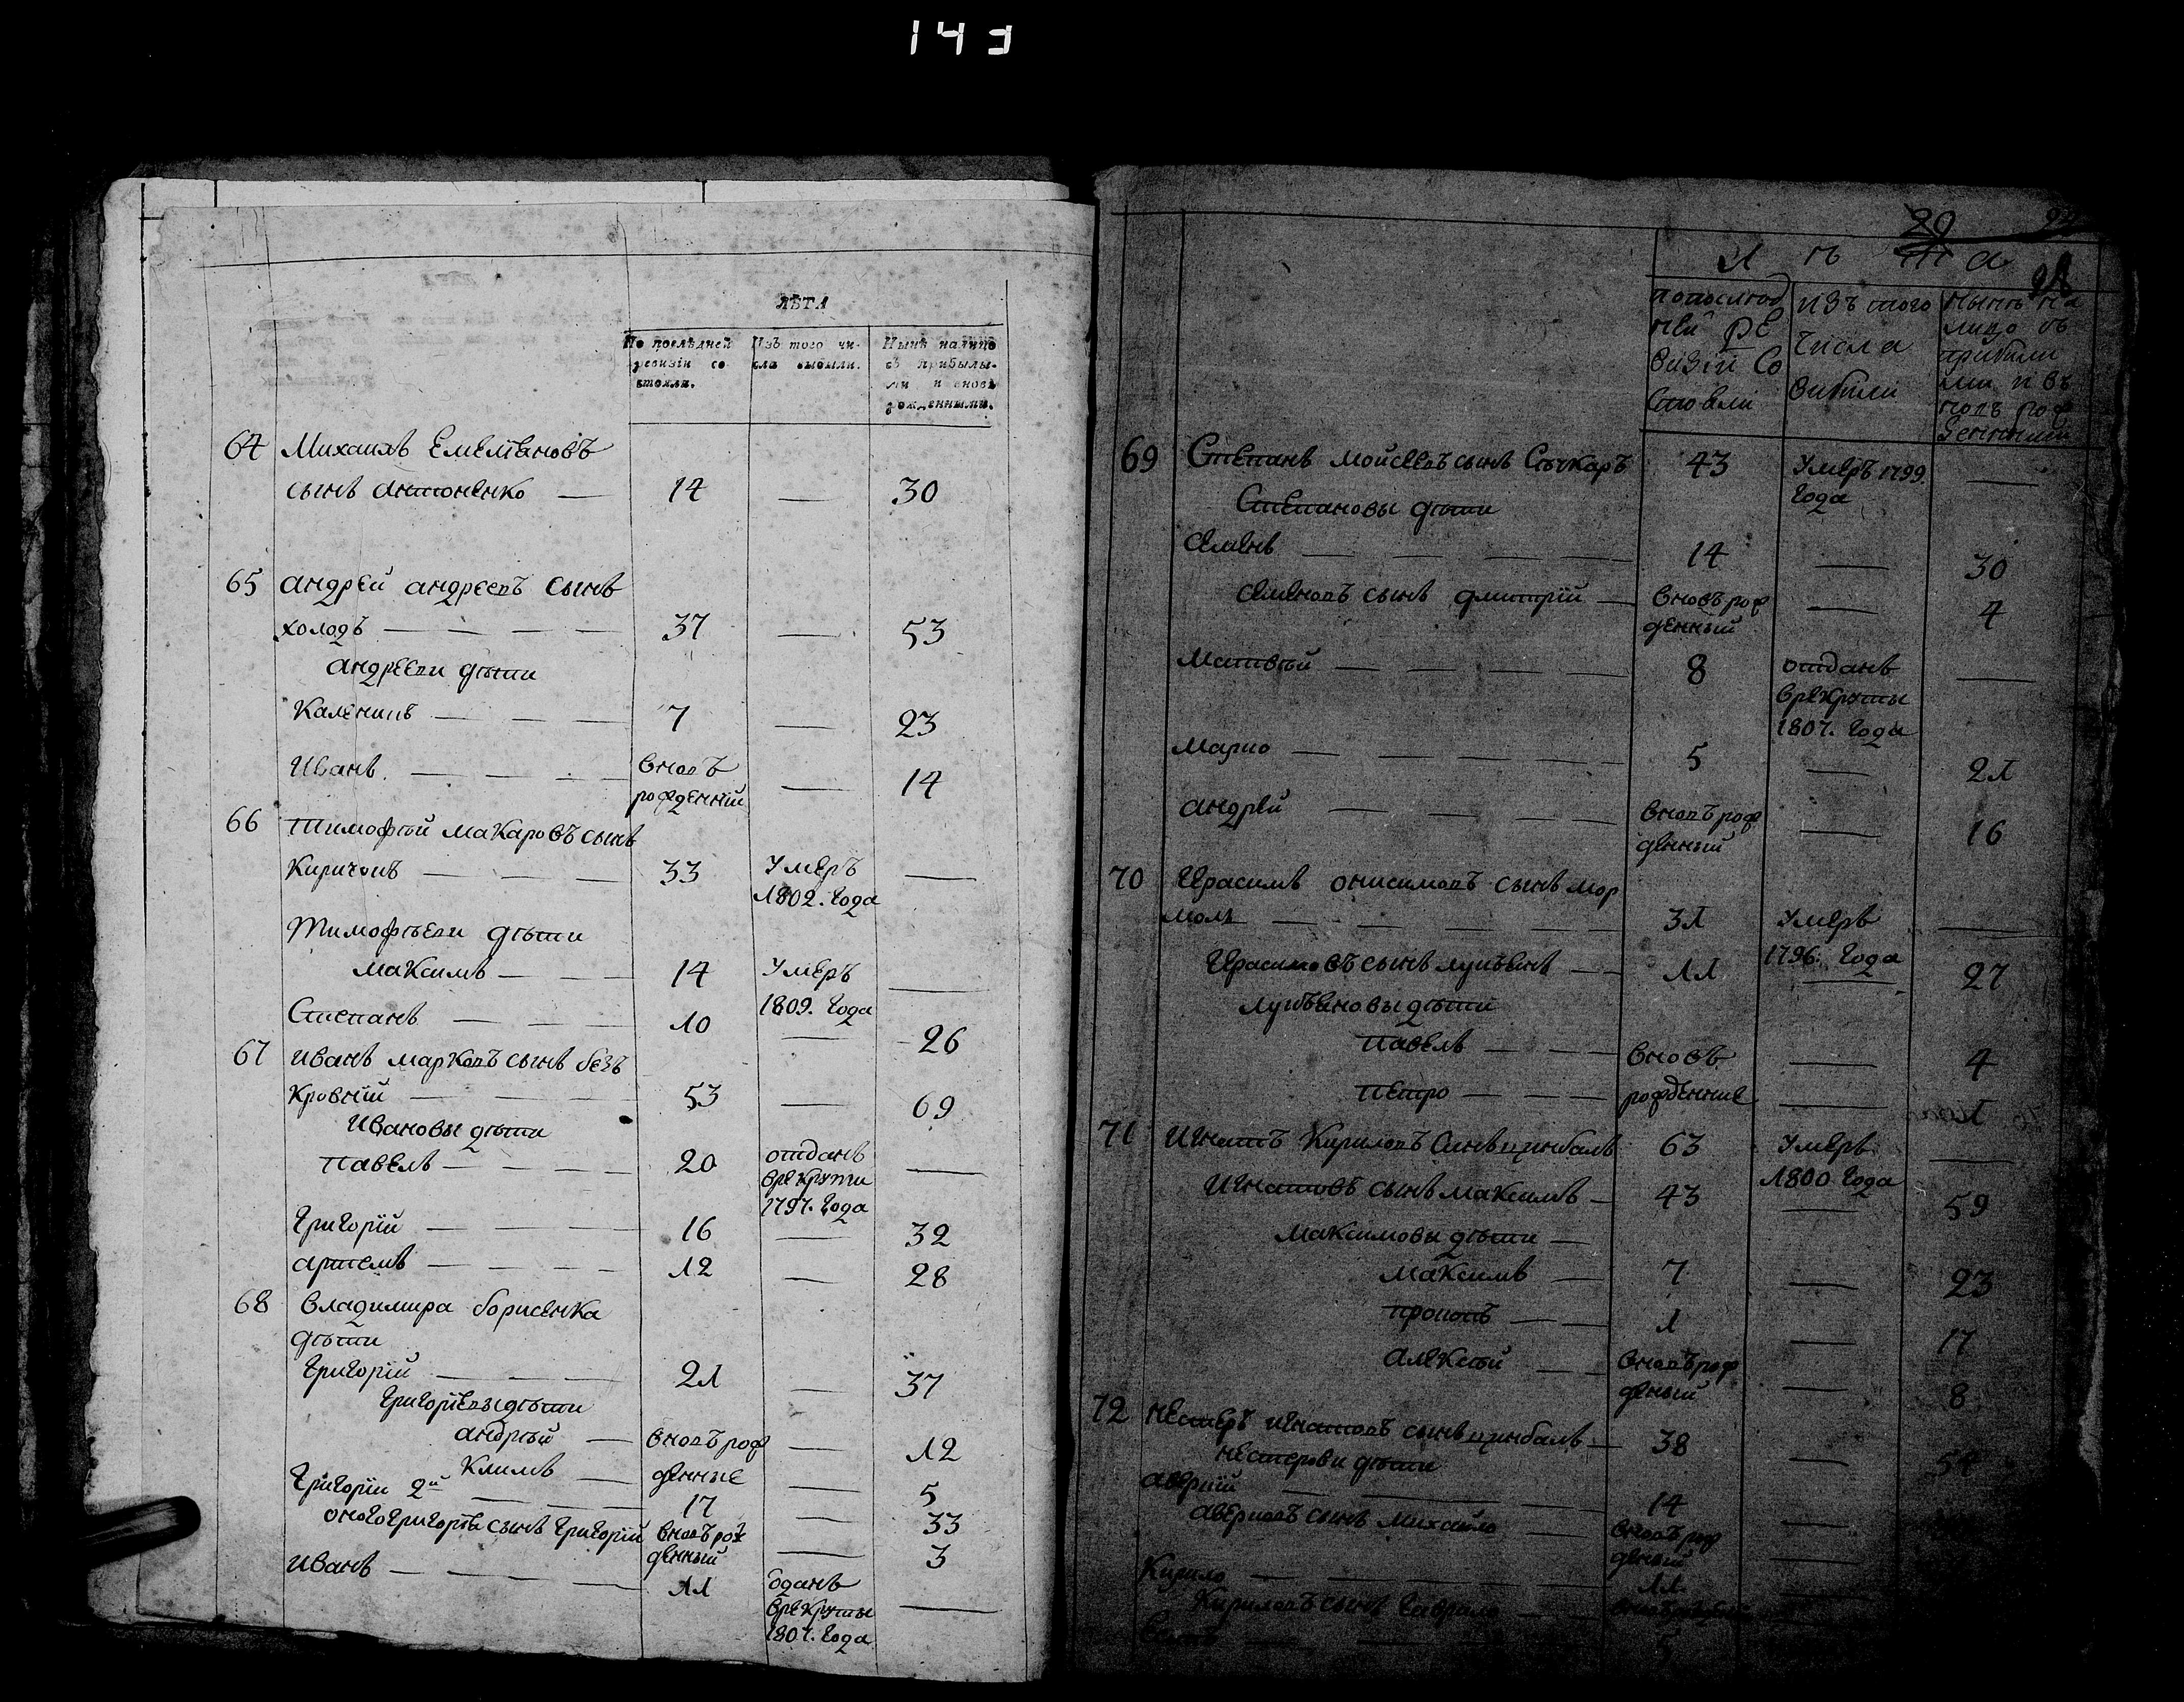 143
ЛѢТА
По послѣдней ревизіи состояли.
Изъ того числа выбыли.
Нынѣ налицо съ прибылыми и вновь рожденными.
64 Михаилъ Емелїановъ
сынъ антоненко — 14 — 30
65 андрей андреевъ сынъ
холодъ — 37 — 53
андрееви дѣти
Каленикъ — 7 — 23
Иванъ — вновъ рожденній — 14
66 Тимофѣй Макаровъ сынъ
Киричокъ — 33 Умеръ 1802. Года —
Тимофѣеви дѣти
Максимъ — 14 Умеръ 1809. Года —
Степанъ — 10 — 26
67 иванъ марковъ сынъ безъ
кровній — 53 — 69
Ивановы дѣти
павелъ — 20 отданъ врекрути 1797. Года —
Григорїй — 16 — 32
артемъ — 12 — 28
68 владимира борисенка
дѣти
Григорїй — 21 — 37
Григорїевы дѣти
андрѣй — вновъ рож — 12
Климъ — денные — 5
Григорїи 2й — 17 — 33
оного Григорїя сынъ Григорїй вновъ рож денный — 3
иванъ — 11 одданъ врекруты 1807. Года —
29
Л ѣ т а
попослѣд ней ре визїи Со Стояли
изъ того числа выбили
Нынѣ на лицо съ прибили ми и въ новъ рож денними
69 Степанъ мойсеевъ сынъ 43 Умеръ 1799 Года —
Степановы дѣти
Семенъ — 14 — 30
Семеновъ сынъ дмитрїй — вновъ рож денный — 4
Матвѣй — 8 отданъ врекруты 1807. Года —
Марко — 5 — 21
андрей — вновъ рож денный — 16
70 Герасимъ онисимовъ сынъ мор
моль — 31 Умеръ 1796. Года —
Герасимовъ сынъ лукъянъ — 11 — 27
лукъяновы дѣти
павелъ — вновъ — 4
петро — рожденние — 1
71 Игнатъ Кириловъ Синъ цинбалъ 63 Умеръ 1800 Года —
Игнатовъ сынъ максимъ — 43 — 59
Максимовы дѣти —
Максимъ — 7 — 23
прокопъ — 1 — 17
алексѣй — вновъ рож деный — 8
72 нестеръ игнатовъ сынъ цинбалъ — 38 — 54
нестерови дѣти
аверкїй — 14 —
аверковъ сынъ михайло — вновъ рож деный —
Кирило — 11 —
Кириловъ сынъ
5